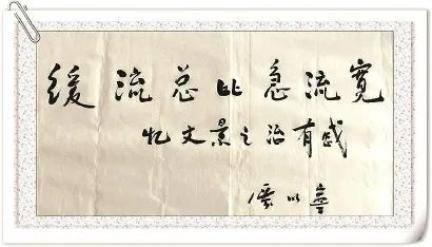 缓流总比急流寬
忆文景之治有感
厲以寧